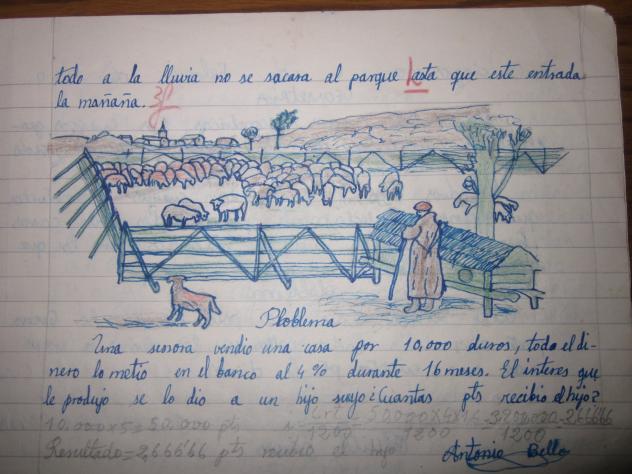 todo a la lluvia no se sacara al parque hasta que este entrada
la mañaña.
Ploblema
Una señora vendio una casa por 10,000 duros, todo el di-
nero lo metio en el banco al 4% durante 16 meses. El interes que
le produjo se lo dio a un hijo suyo ¿Cuantas pts recibio el hijo?
10.000x5=50.000 pts
1200 1200 1200
Resultado=2,666'66 pts recibio el hijo
Antonio Bello